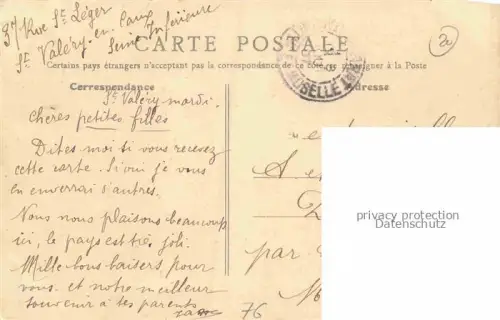 37 Rue St Léger
St Valéry-en-Caux
Seine Inférieure
20
CARTE POSTALE
Certains pays étrangers n'acceptent pas la correspondance de ce côté, se renseigner à la Poste
Correspondance
Adresse
MOSELLE
St Valéry mardi.
Chères petites filles
Dites moi si vous recevez
cette carte. Si oui je vous
en enverrai d'autres.
Nous nous plaisons beaucoup
ici, le pays est très joli.
Mille bons baisers, pour
vous. et notre meilleur
souvenir à tes parents
par
privacy protection
Datenschutz
76